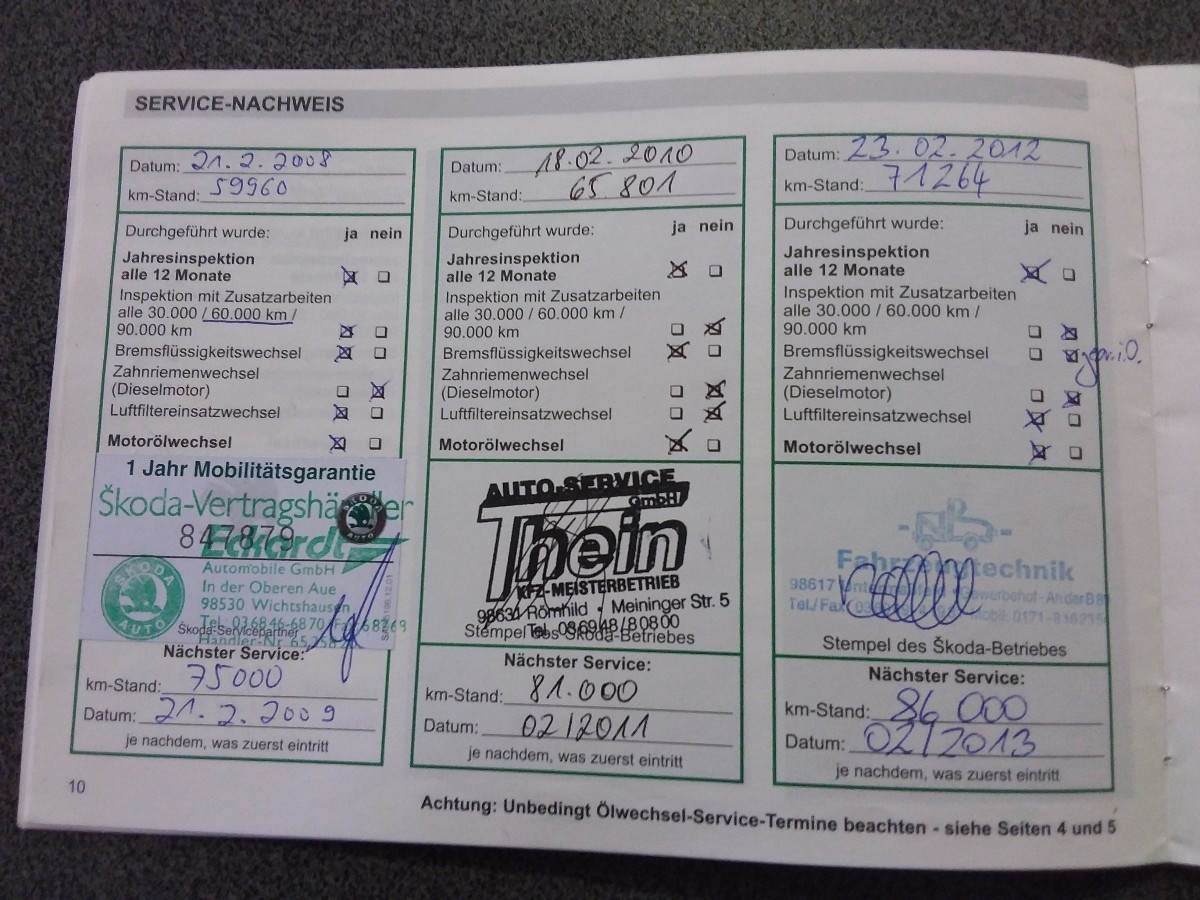 SERVICE-NACHWEIS
Datum: 21.2.2008
km-Stand: 59960
Durchgeführt wurde: ja nein
Jahresinspektion
alle 12 Monate
Inspektion mit Zusatzarbeiten
alle 30.000 / 60.000 km /
90.000 km
Bremsflüssigkeitswechsel
Zahnriemenwechsel
(Dieselmotor)
Luftfiltereinsatzwechsel
Motorölwechsel
1 Jahr Mobilitätsgarantie
Škoda-Vertragshändler
847879
Eckardt
Automobile GmbH
ŠKODA
AUTO
In der Oberen Aue
98530 Wichtshausen
Tel. 036846-6870
Škoda-Servicepartner
Händler-Nr.
Nächster Service:
km-Stand: 75000
Datum: 21.2.2009
je nachdem, was zuerst eintritt
Datum: 18.02.2010
km-Stand: 65.801
Durchgeführt wurde: ja nein
Jahresinspektion
alle 12 Monate
Inspektion mit Zusatzarbeiten
alle 30.000 / 60.000 km /
90.000 km
Bremsflüssigkeitswechsel
Zahnriemenwechsel
(Dieselmotor)
Luftfiltereinsatzwechsel
Motorölwechsel
AUTO-SERVICE
GmbH
Thein
KFZ-MEISTERBETRIEB
98630 Römhild · Meininger Str. 5
Tel. 036948/80800
Stempel des Škoda-Betriebes
Nächster Service:
km-Stand: 81.000
Datum: 02/2011
je nachdem, was zuerst eintritt
Datum: 23.02.2012
km-Stand: 71264
Durchgeführt wurde: ja nein
Jahresinspektion
alle 12 Monate
Inspektion mit Zusatzarbeiten
alle 30.000 / 60.000 km /
90.000 km
Bremsflüssigkeitswechsel
i.O.
Zahnriemenwechsel
(Dieselmotor)
Luftfiltereinsatzwechsel
Motorölwechsel
Fahrzeugtechnik
98617
Tel./Fax
Stempel des Škoda-Betriebes
Nächster Service:
km-Stand: 86 000
Datum: 02/2013
je nachdem, was zuerst eintritt
10
Achtung: Unbedingt Ölwechsel-Service-Termine beachten - siehe Seiten 4 und 5